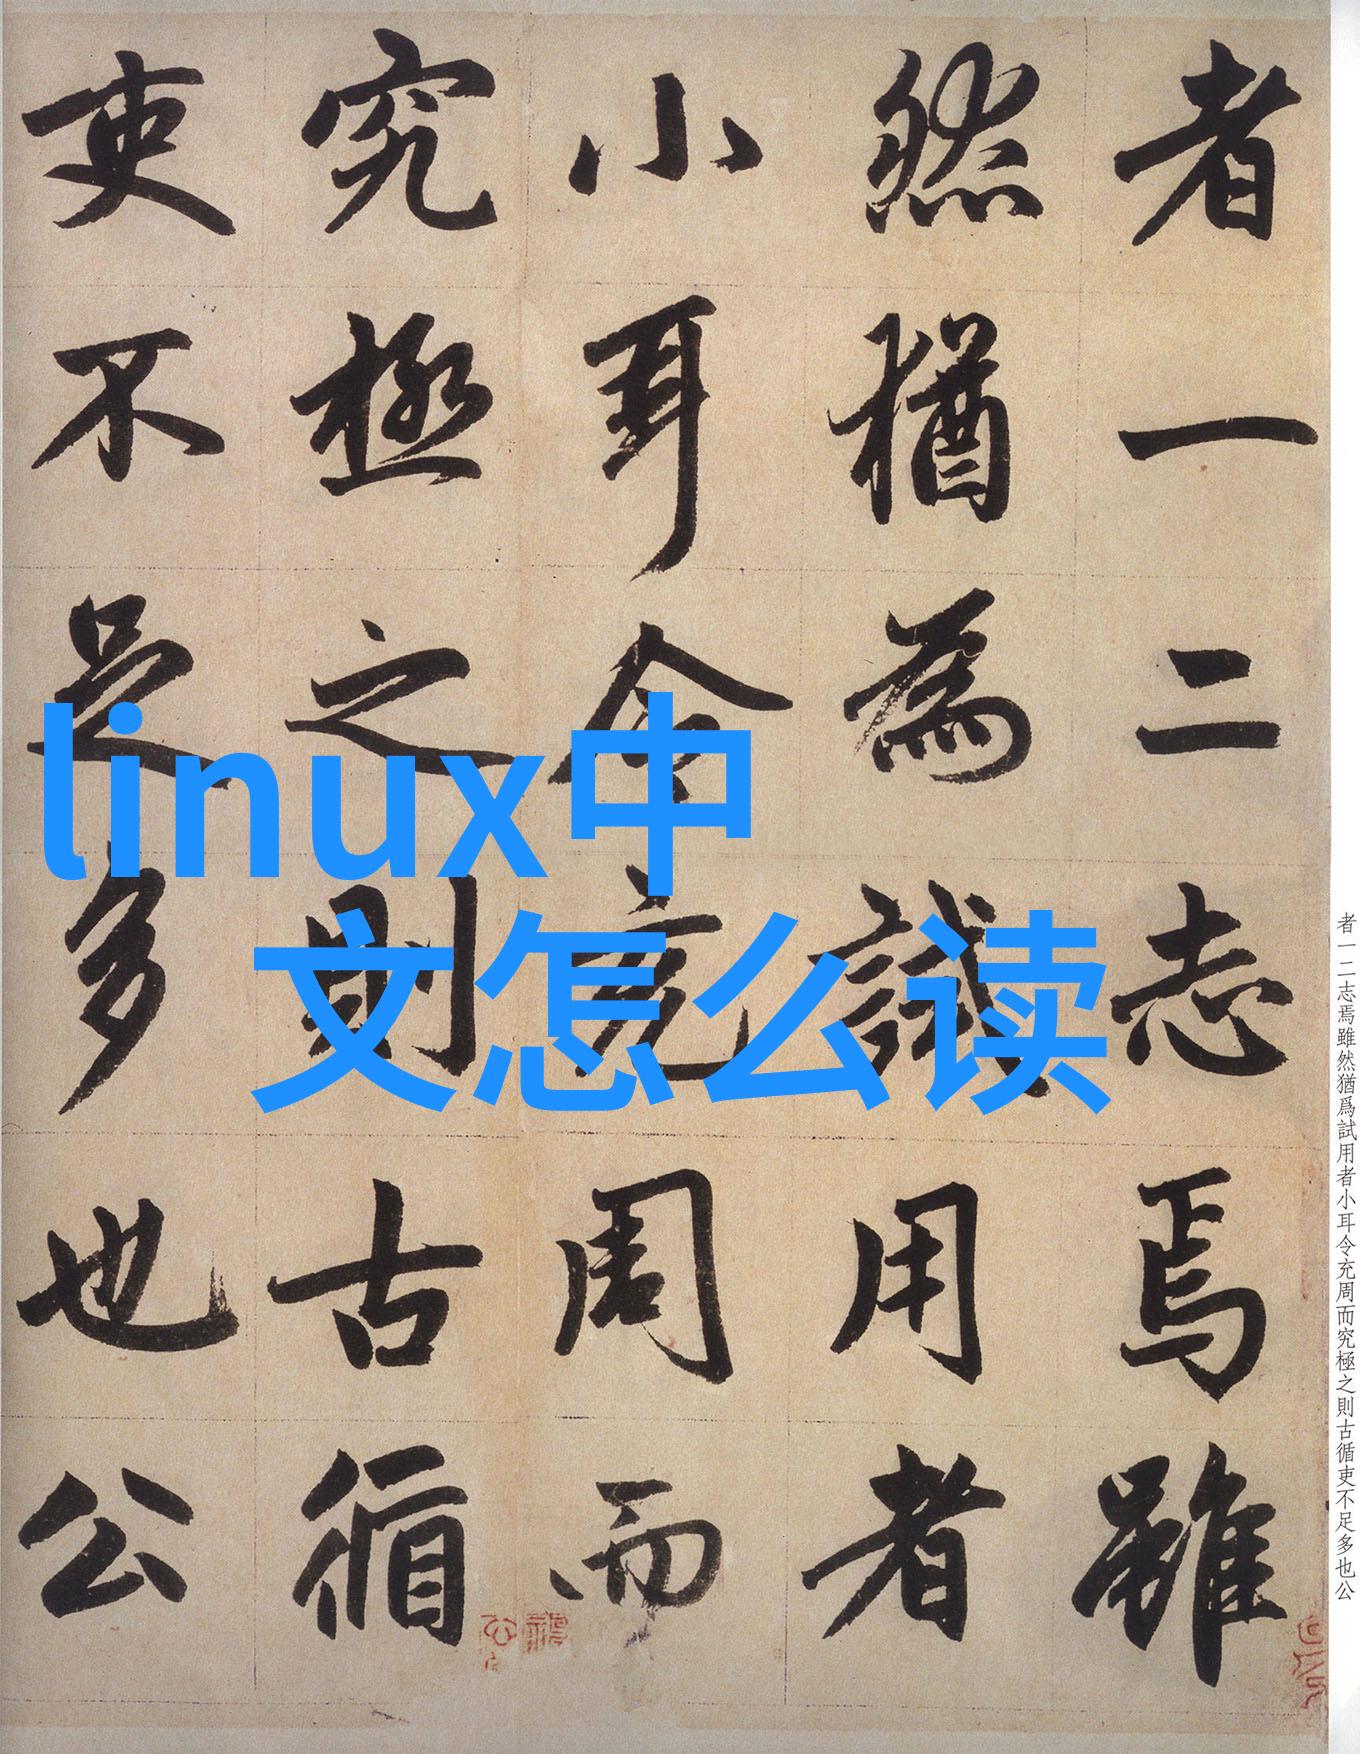 linux中
文怎么读
者一二志焉雖
然猶為試用者
小耳令充周而
究極之則古循
吏不足多也公
者一二志焉雖然猶爲試用者小耳令充周而究極之則古循吏不足多也公